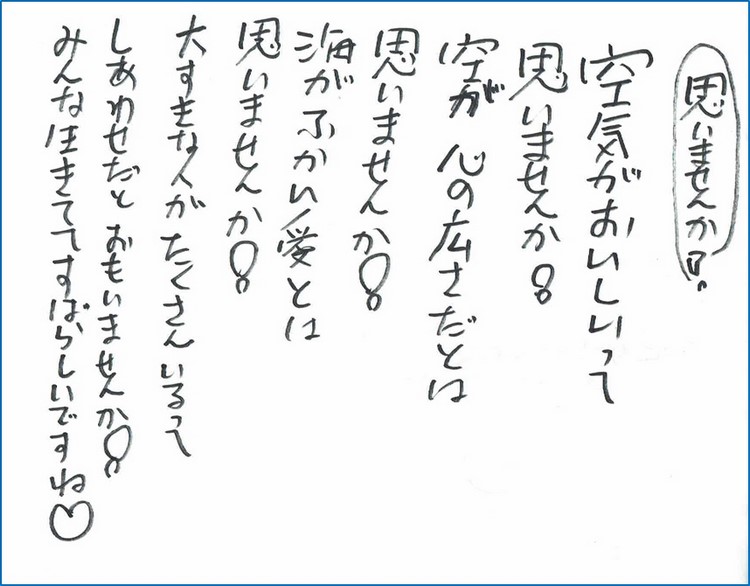 思いませんか?
空気がおいしいって
思いませんか!
空が心の広さだとは
思いませんか!
海がふかい愛とは
思いませんか!
大すきな人がたくさんいるって
しあわせだとおもいませんか!
みんな生きててすばらしいですね♡